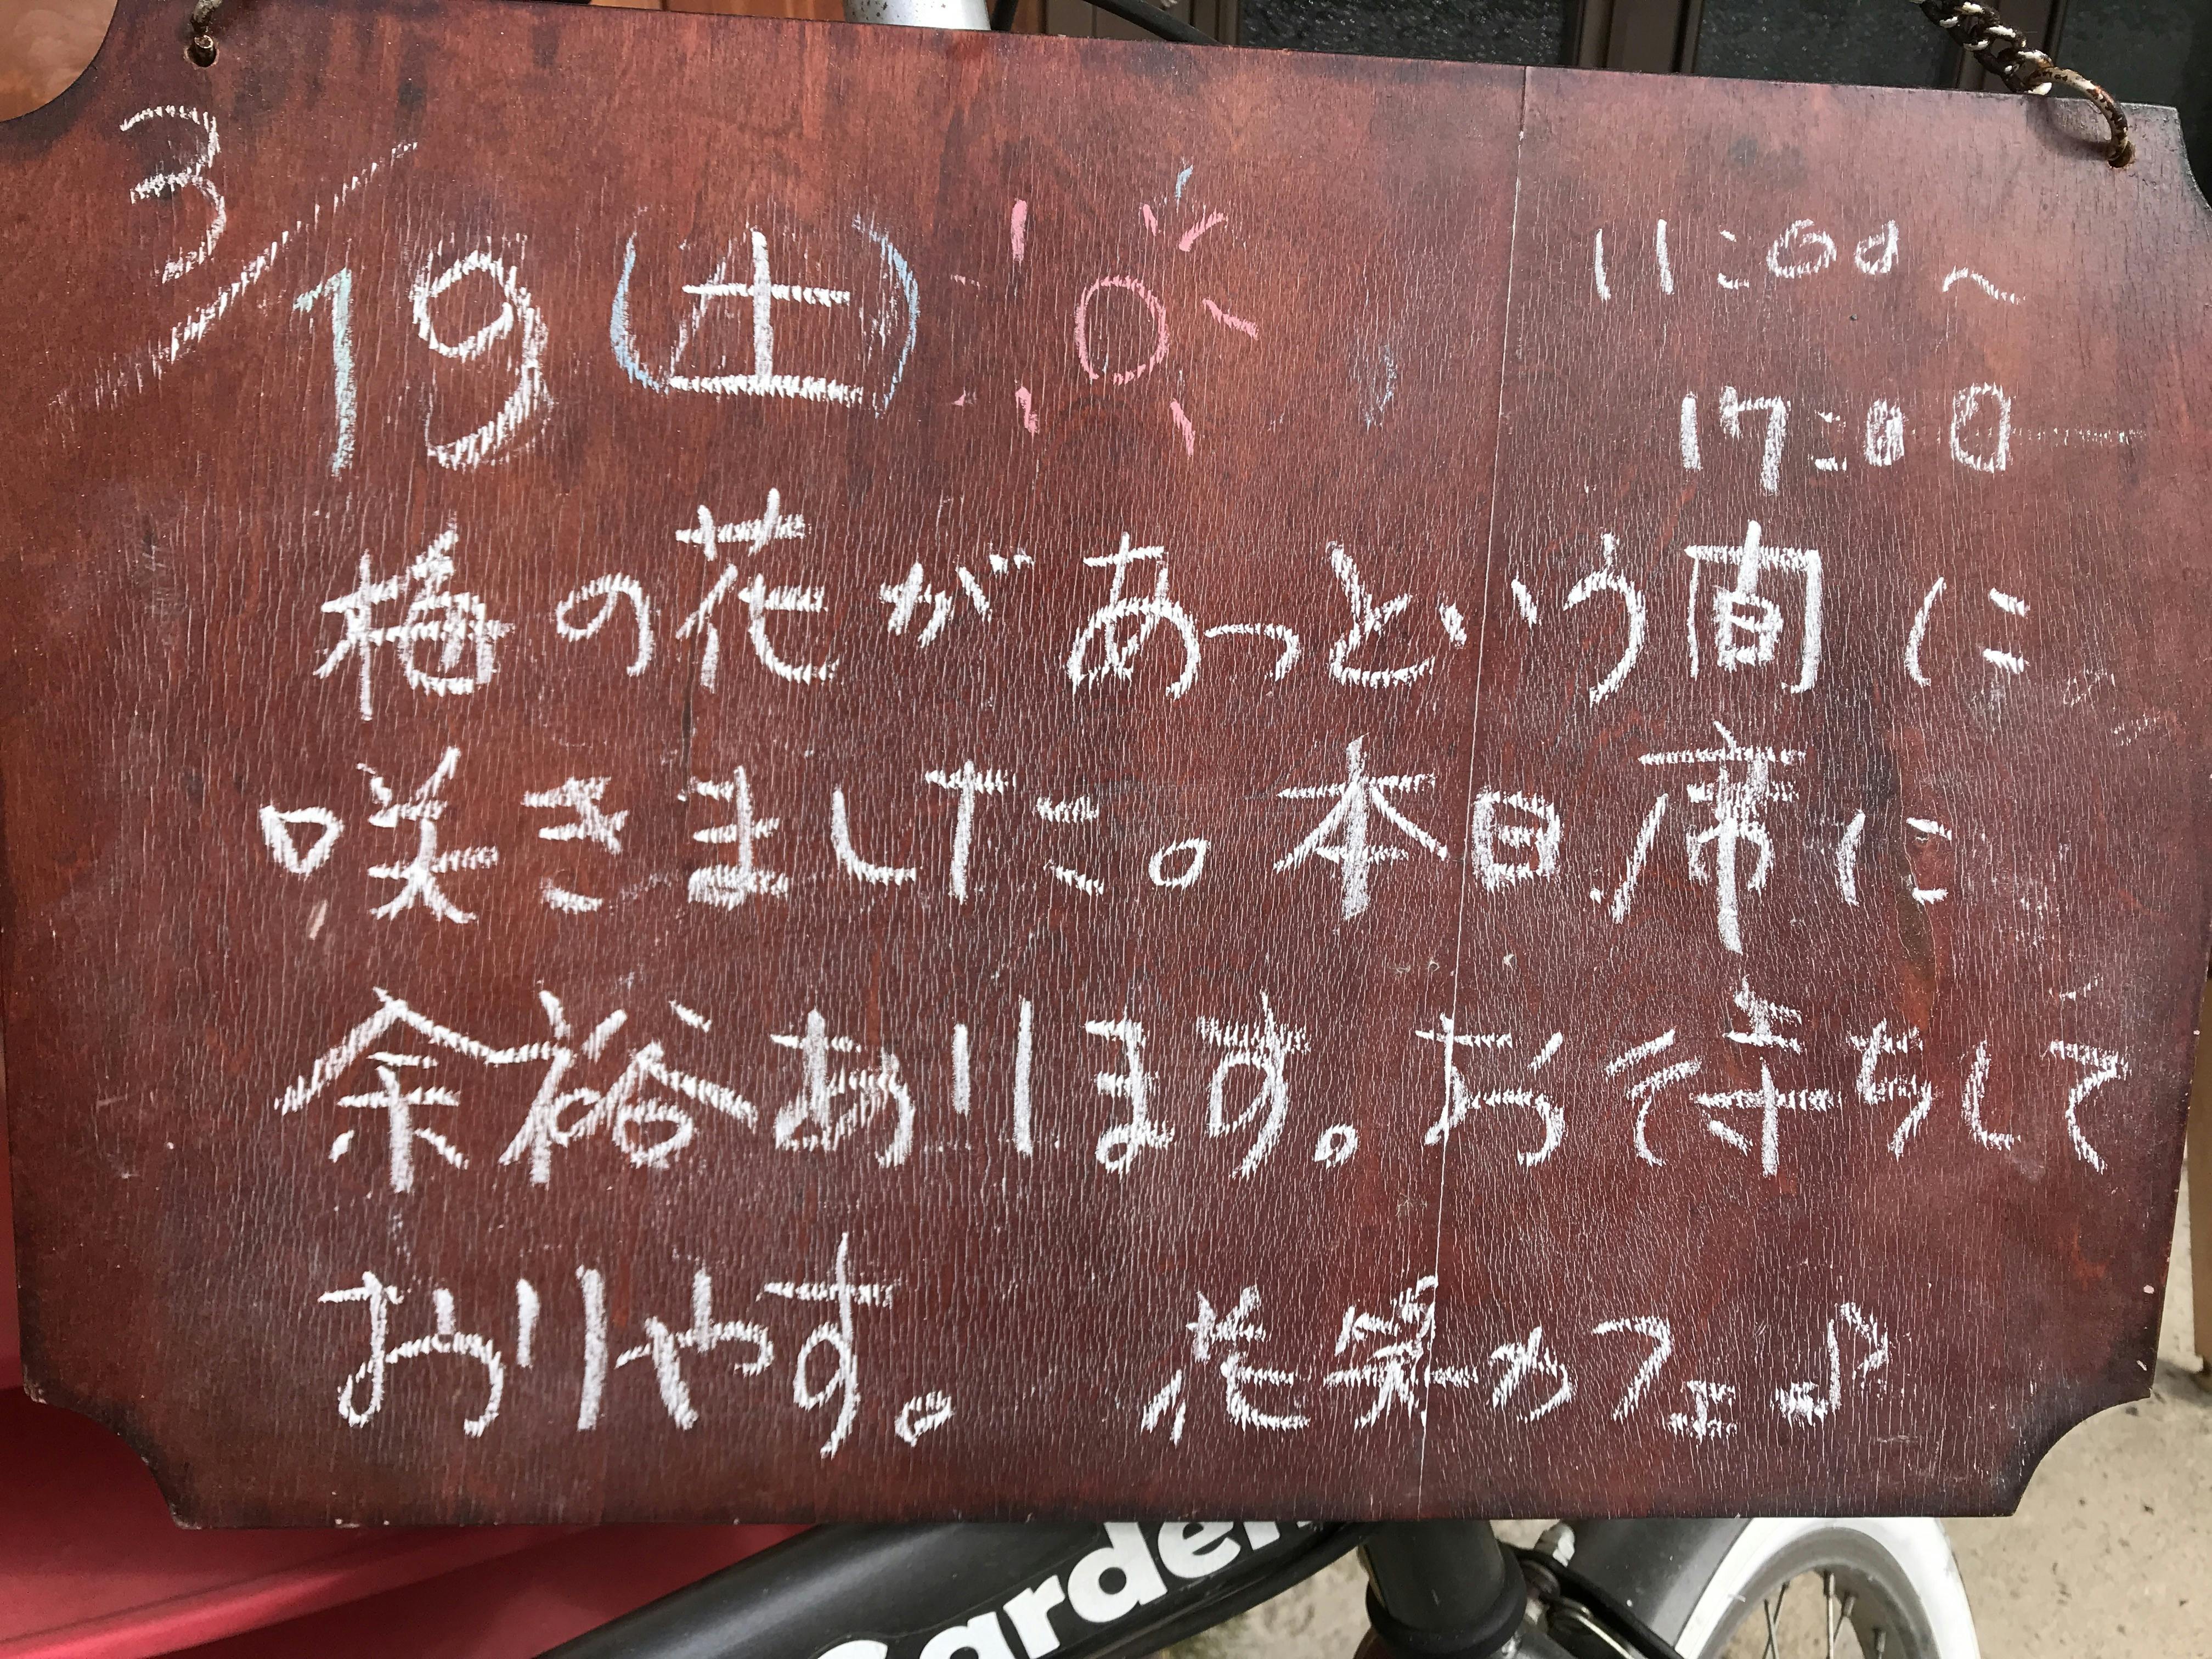 3/19(土) 11:00〜
17:00
梅の花があっという間に
咲きました。本日席に
余裕あります。お待ちして
おりやす。 花笑カフェ♪
Garden